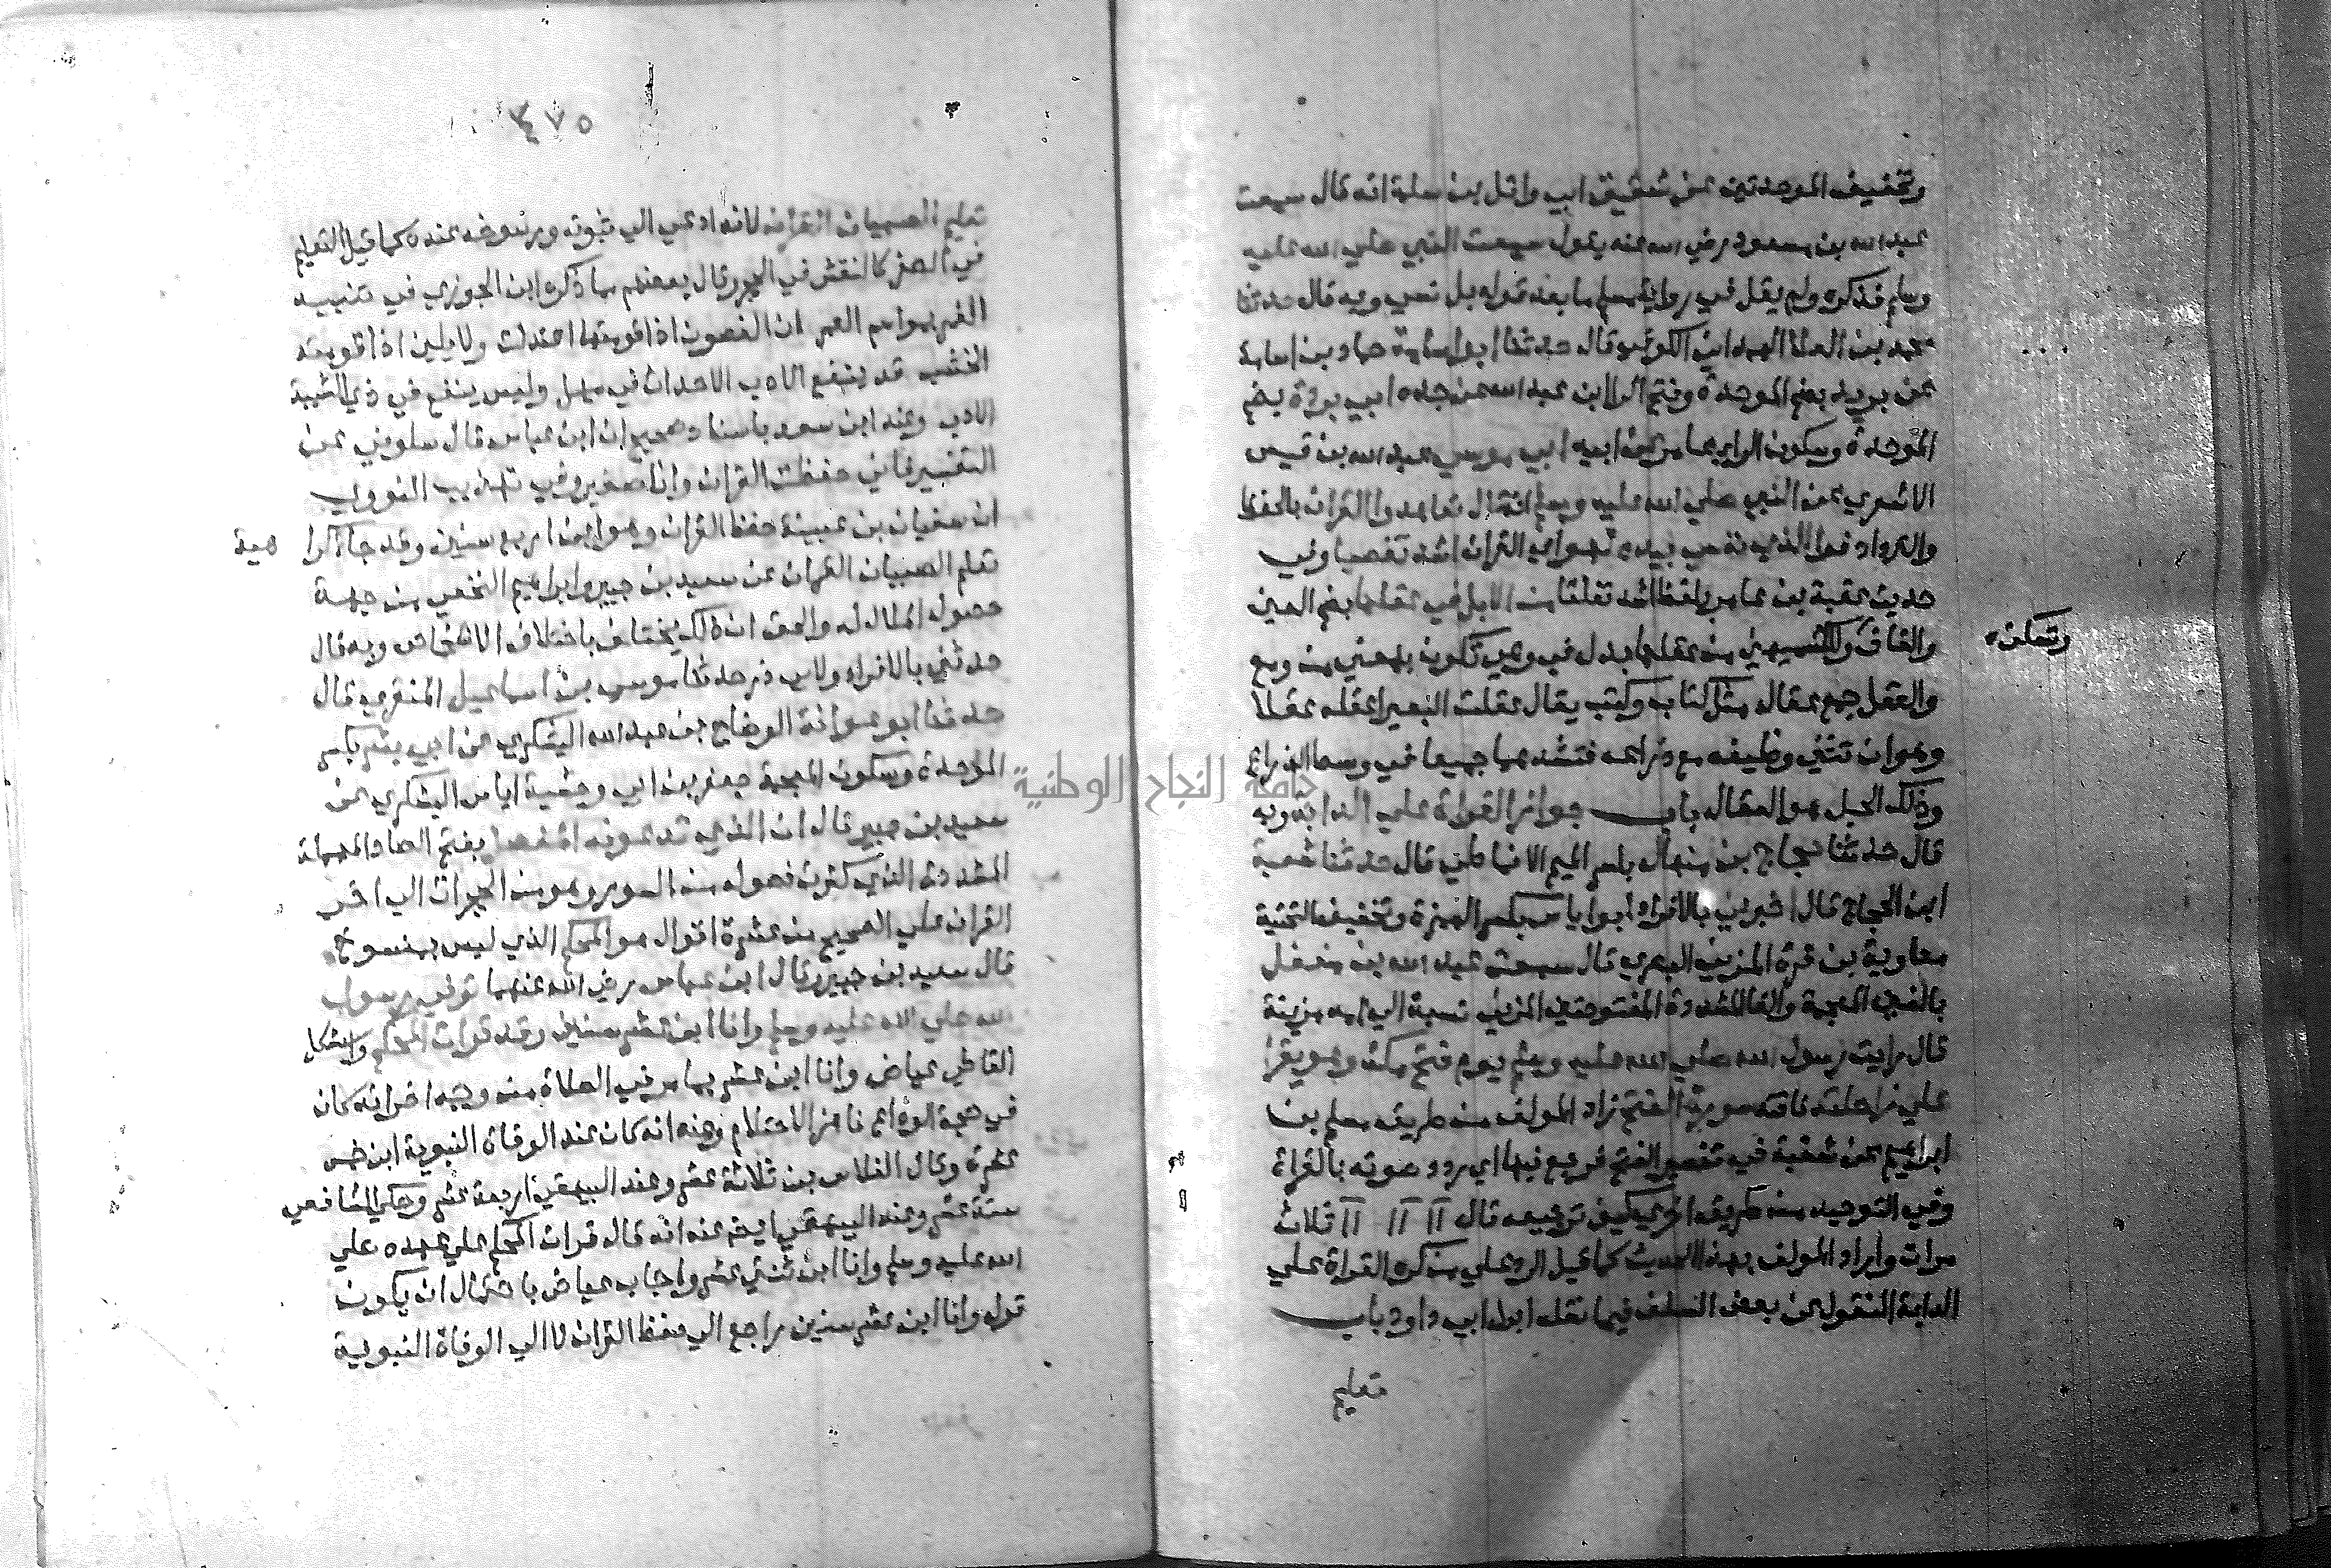 وتخفيف الموحدتين عن شقيق ابي وائل بن سلمة انه قال سمعت
عبد الله بن مسعود رضي الله عنه يقول سمعت النبي صلي الله عليه
وسلم فذكره ولم يقل في رواية مسلم ما بعد قوله بل نسي وبه قال حدثنا
محمد بن العلا الهمداني الكوفي قال حدثنا ابو اسامة حماد بن اسامة
عن بريد بضم الموحدة وفتح الرا ابن عبد الله عن جده ابي بردة بضم
الموحدة وسكون الرا عامر عن ابيه ابي موسي عبد الله بن قيس
الاشعري عن النبي صلي الله عليه وسلم انه قال تعاهدوا القران بالحفظ
والترداد فوالذي نفسي بيده لهو اي القران اشد تفصيا وفي
حديث عقبة بن عامر بلفظ اشد تفلتا من الابل في عقلها بضم العين
والقاف وللكشميهني من عقلها بدل في وهي تكون بمعني من ومع
وتسكن
والعقل جمع عقال مثل كتاب وكتب يقال عقلت البعير اعقله عقلا
وهو ان تثني وظيفه مع ذراعه فتشدهما جميعا في وسط الذراع
وذلك الحبل هو العقال باب جواز القراة علي الدابة وبه
قال حدثنا حجاج بن منهال بكسر الميم الانماطي قال حدثنا شعبة
ابن الحجاج قال اخبرني بالافراد ابو اياس بكسر الهمزة وتخفيف التحتية
معاوية بن قرة المزني البصري قال سمعت عبد الله بن مغفل
بالغين المعجمة والفا المشددة المفتوحتين المزني نسبة الي امه مزينة
قال رايت رسول الله صلي الله عليه وسلم يوم فتح مكة وهو يقرا
علي راحلته ناقته سورة الفتح زاد المولف من طريق مسلم بن
ابراهيم عن شعبة في تفسير الفتح فرجع فيها اي ردد صوته بالقراة
وفي التوحيد من طريق اخري كيف ترجيعه قال اا اا اا ثلاث
مرات واراد المولف بهذا الحديث كما قيل الرد علي من كره القراة علي
الدابة المنقول عن بعض السلف فيما نقله ابن ابي داود باب
تعليم
٤٧٥
تعليم الصبيان القران لانه ادعي الي ثبوته ورسوخه عنده كما قيل التعليم
في الصغر كالنقش في الحجر وقال بعضهم مما ذكره ابن الجوزي في تنبيه
الغمر بمواسم العمر ان الغصون اذا قومتها اعتدلت ولا يلين اذا قومته
الخشب قد ينفع الادب الاحداث في مهل وليس ينفع في ذي الشيبة
الادب وعند ابن سعد باسناد صحيح ان ابن عباس قال سلوني عن
التفسير فاني حفظت القران وانا صغير وفي تهذيب النووي
ان سفيان بن عيينة حفظ القران وهو ابن اربع سنين وقد جا كرا
هية
تعلم الصبيان القران عن سعيد بن جبير وابراهيم النخعي من جهة
حصول الملال له والحق ان ذلك يختلف باختلاف الاشخاص وبه قال
حدثني بالافراد ولابي ذر حدثنا موسي بن اسماعيل المنقري قال
حدثنا ابو عوانة الوضاح بن عبد الله اليشكري عن ابي بشر بكسر
الموحدة وسكون المعجمة جعفر بن ابي وحشية اياس اليشكري عن
سعيد بن جبير قال ان الذي تدعونه المفصل بفتح الصاد المهملة
المشددة الذي كثرت فصوله من السور وهو من الحجرات الي اخر
القران علي الصحيح من عشرة اقوال هو المحكم الذي ليس بمنسوخ
قال سعيد بن جبير وقال ابن عباس رضي الله عنهما توفي رسول
الله صلي الله عليه وسلم وانا ابن عشر سنين وقد قرات المحكم واستشكل
القاضي عياض وانا ابن عشر بما مر في الصلاة من وجه اخر انه كان
في حجة الوداع ناهز الاحتلام وعنه انه كان عند الوفاة النبوية ابن خمس
عشرة وقال الفلاس بن ثلاثة عشر وعند البيهقي اربعة عشر وحكي الشافعي
ستة عشر وعند البيهقي ايضا عنه انه قال قرات المحكم علي عهده صلي
الله عليه وسلم وانا ابن ثنتي عشر واجاب عياض باحتمال ان يكون
قوله وانا ابن عشر سنين راجع الي حفظ القران لا الي الوفاة النبوية
جامعة النجاح الوطنية